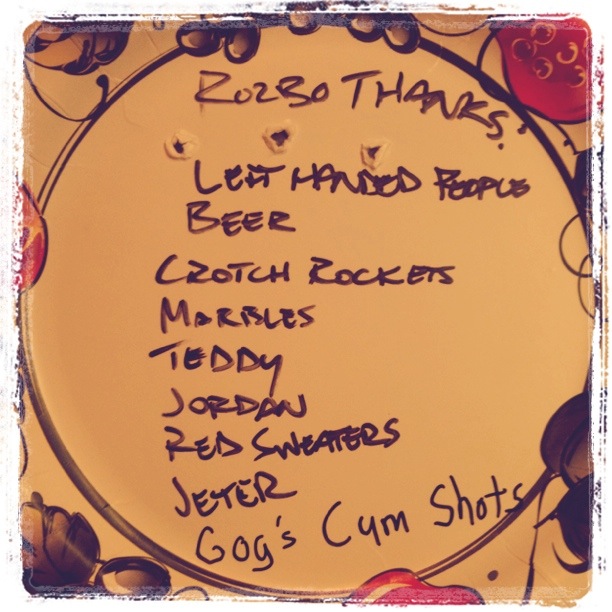 ROZBO THANKS:
LEFT HANDED PEOPLE
BEER
CROTCH ROCKETS
MARBLES
TEDDY
JORDAN
RED SWEATERS
JETER
Gog's Cum Shots